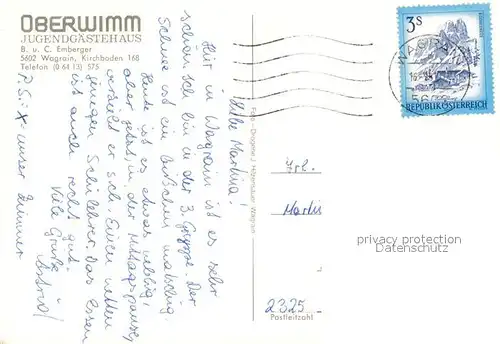 OBERWIMM
JUGENDGÄSTEHAUS
B. u. C. Emberger
5602 Wagrain, Kirchboden 168
Telefon (0 64 13) 575
Liebe Martina!
Hier in Wagrain ist es sehr
schön. Ich bin in der 3. Gruppe. Der
Schnee ist ein bißchen matschig.
Heute ist es etwas neblig,
aber jetzt, in der Mittagspause,
er sich. Einen netten
jungen Schilehrer. Das Essen
ist auch recht gut.
Viele Grüße
Astrid!
P.S.: X unser Zimmer
Foto-Drogerie J. Wagrain
3 S
REPUBLIK ÖSTERREICH
WAGRAIN
Frl.
Martin
privacy protection
Datenschutz
2325
Postleitzahl